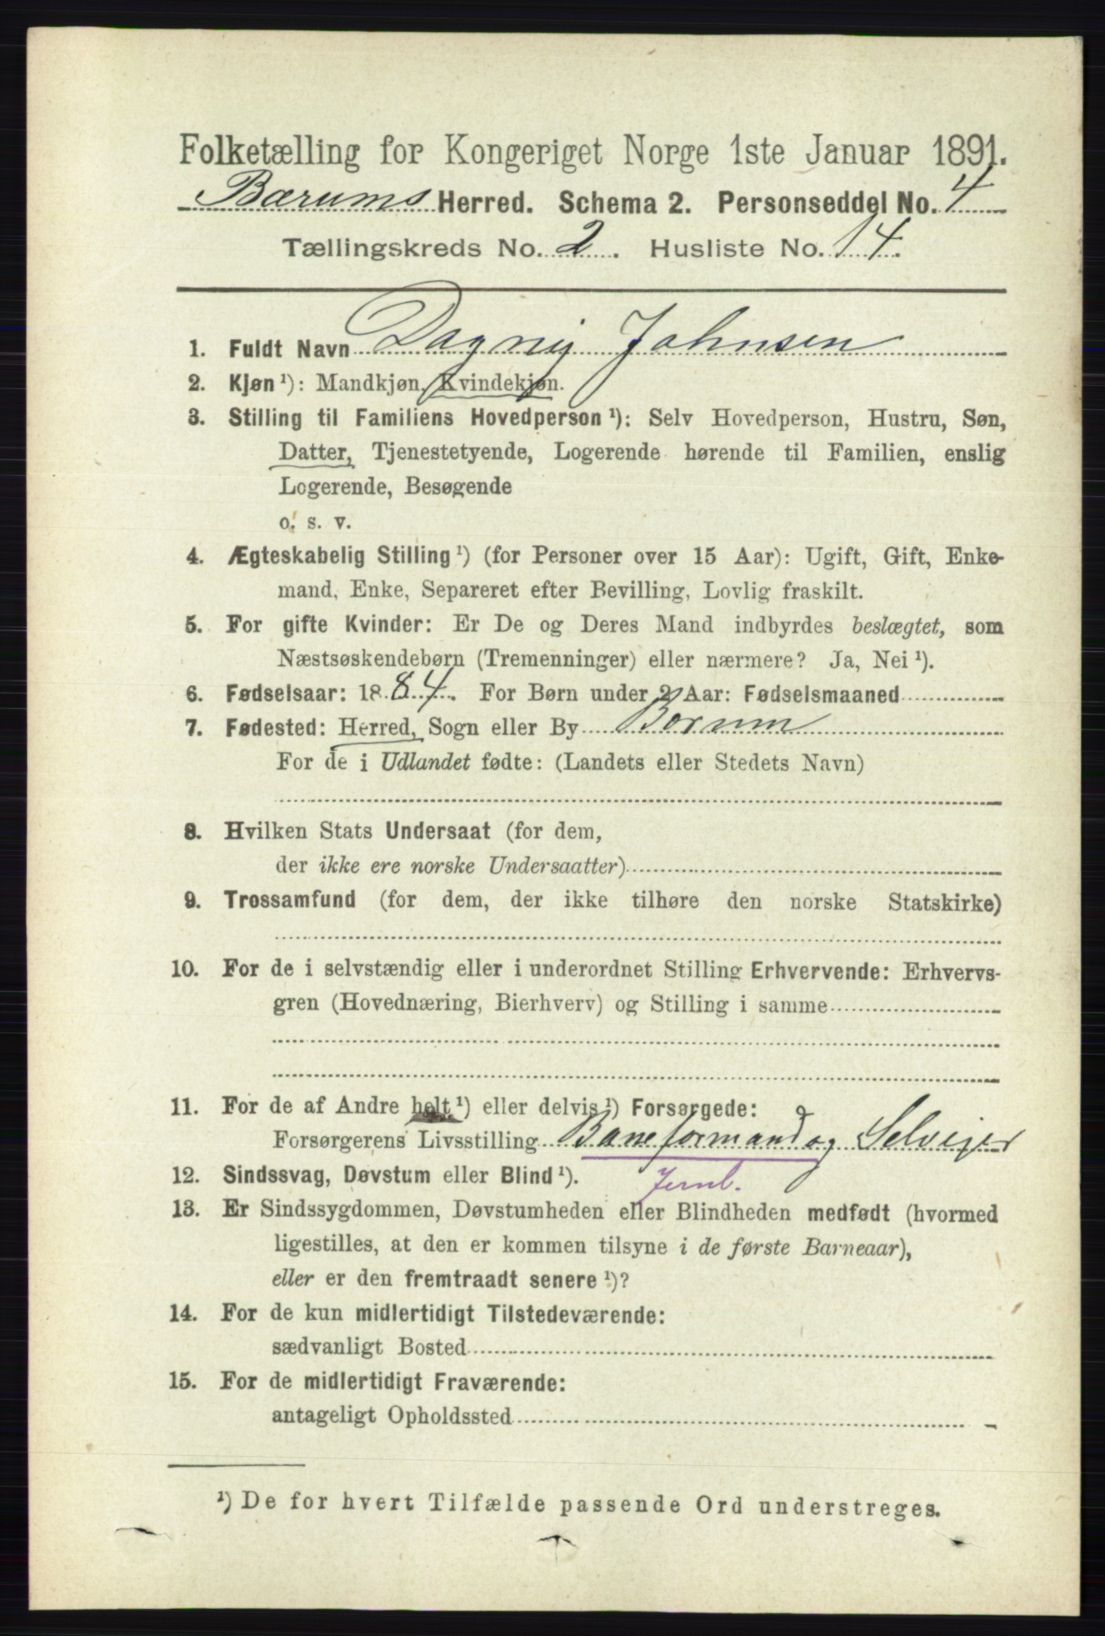 Folketælling for Kongeriget Norge 1ste Januar 1891.
Bærums Herred. Schema 2. Personseddel No. 4
Tællingskreds No. 2. Husliste No. 14.
1. Fuldt Navn Dagny Johnsen
2. Kjøn ¹): Mandkjøn, Kvindekjøn.
3. Stilling til Familiens Hovedperson ¹): Selv Hovedperson, Hustru, Søn,
Datter, Tjenestetyende, Logerende hørende til Familien, enslig
Logerende, Besøgende
o. s. v.
4. Ægteskabelig Stilling ¹) (for Personer over 15 Aar): Ugift, Gift, Enke-
mand, Enke, Separeret efter Bevilling, Lovlig fraskilt.
5. For gifte Kvinder: Er De og Deres Mand indbyrdes beslægtet, som
Næstsøskendebørn (Tremenninger) eller nærmere? Ja, Nei ¹).
6. Fødselsaar: 1884. For Børn under 2 Aar: Fødselsmaaned
7. Fødested: Herred, Sogn eller By Børum
For de i Udlandet fødte: (Landets eller Stedets Navn)
8. Hvilken Stats Undersaat (for dem,
der ikke ere norske Undersaatter)
9. Trossamfund (for dem, der ikke tilhøre den norske Statskirke)
10. For de i selvstændig eller i underordnet Stilling Erhvervende: Erhvervs-
gren (Hovednæring, Bierhverv) og Stilling i samme
11. For de af Andre helt ¹) eller delvis ¹) Forsørgede:
Forsørgerens Livsstilling Baneformand og Selveier
12. Sindssvag, Døvstum eller Blind ¹). Jernb.
13. Er Sindssygdommen, Døvstumheden eller Blindheden medfødt (hvormed
ligestilles, at den er kommen tilsyne i de første Barneaar),
eller er den fremtraadt senere ¹)?
14. For de kun midlertidigt Tilstedeværende:
sædvanligt Bosted
15. For de midlertidigt Fraværende:
antageligt Opholdssted
¹) De for hvert Tilfælde passende Ord understreges.